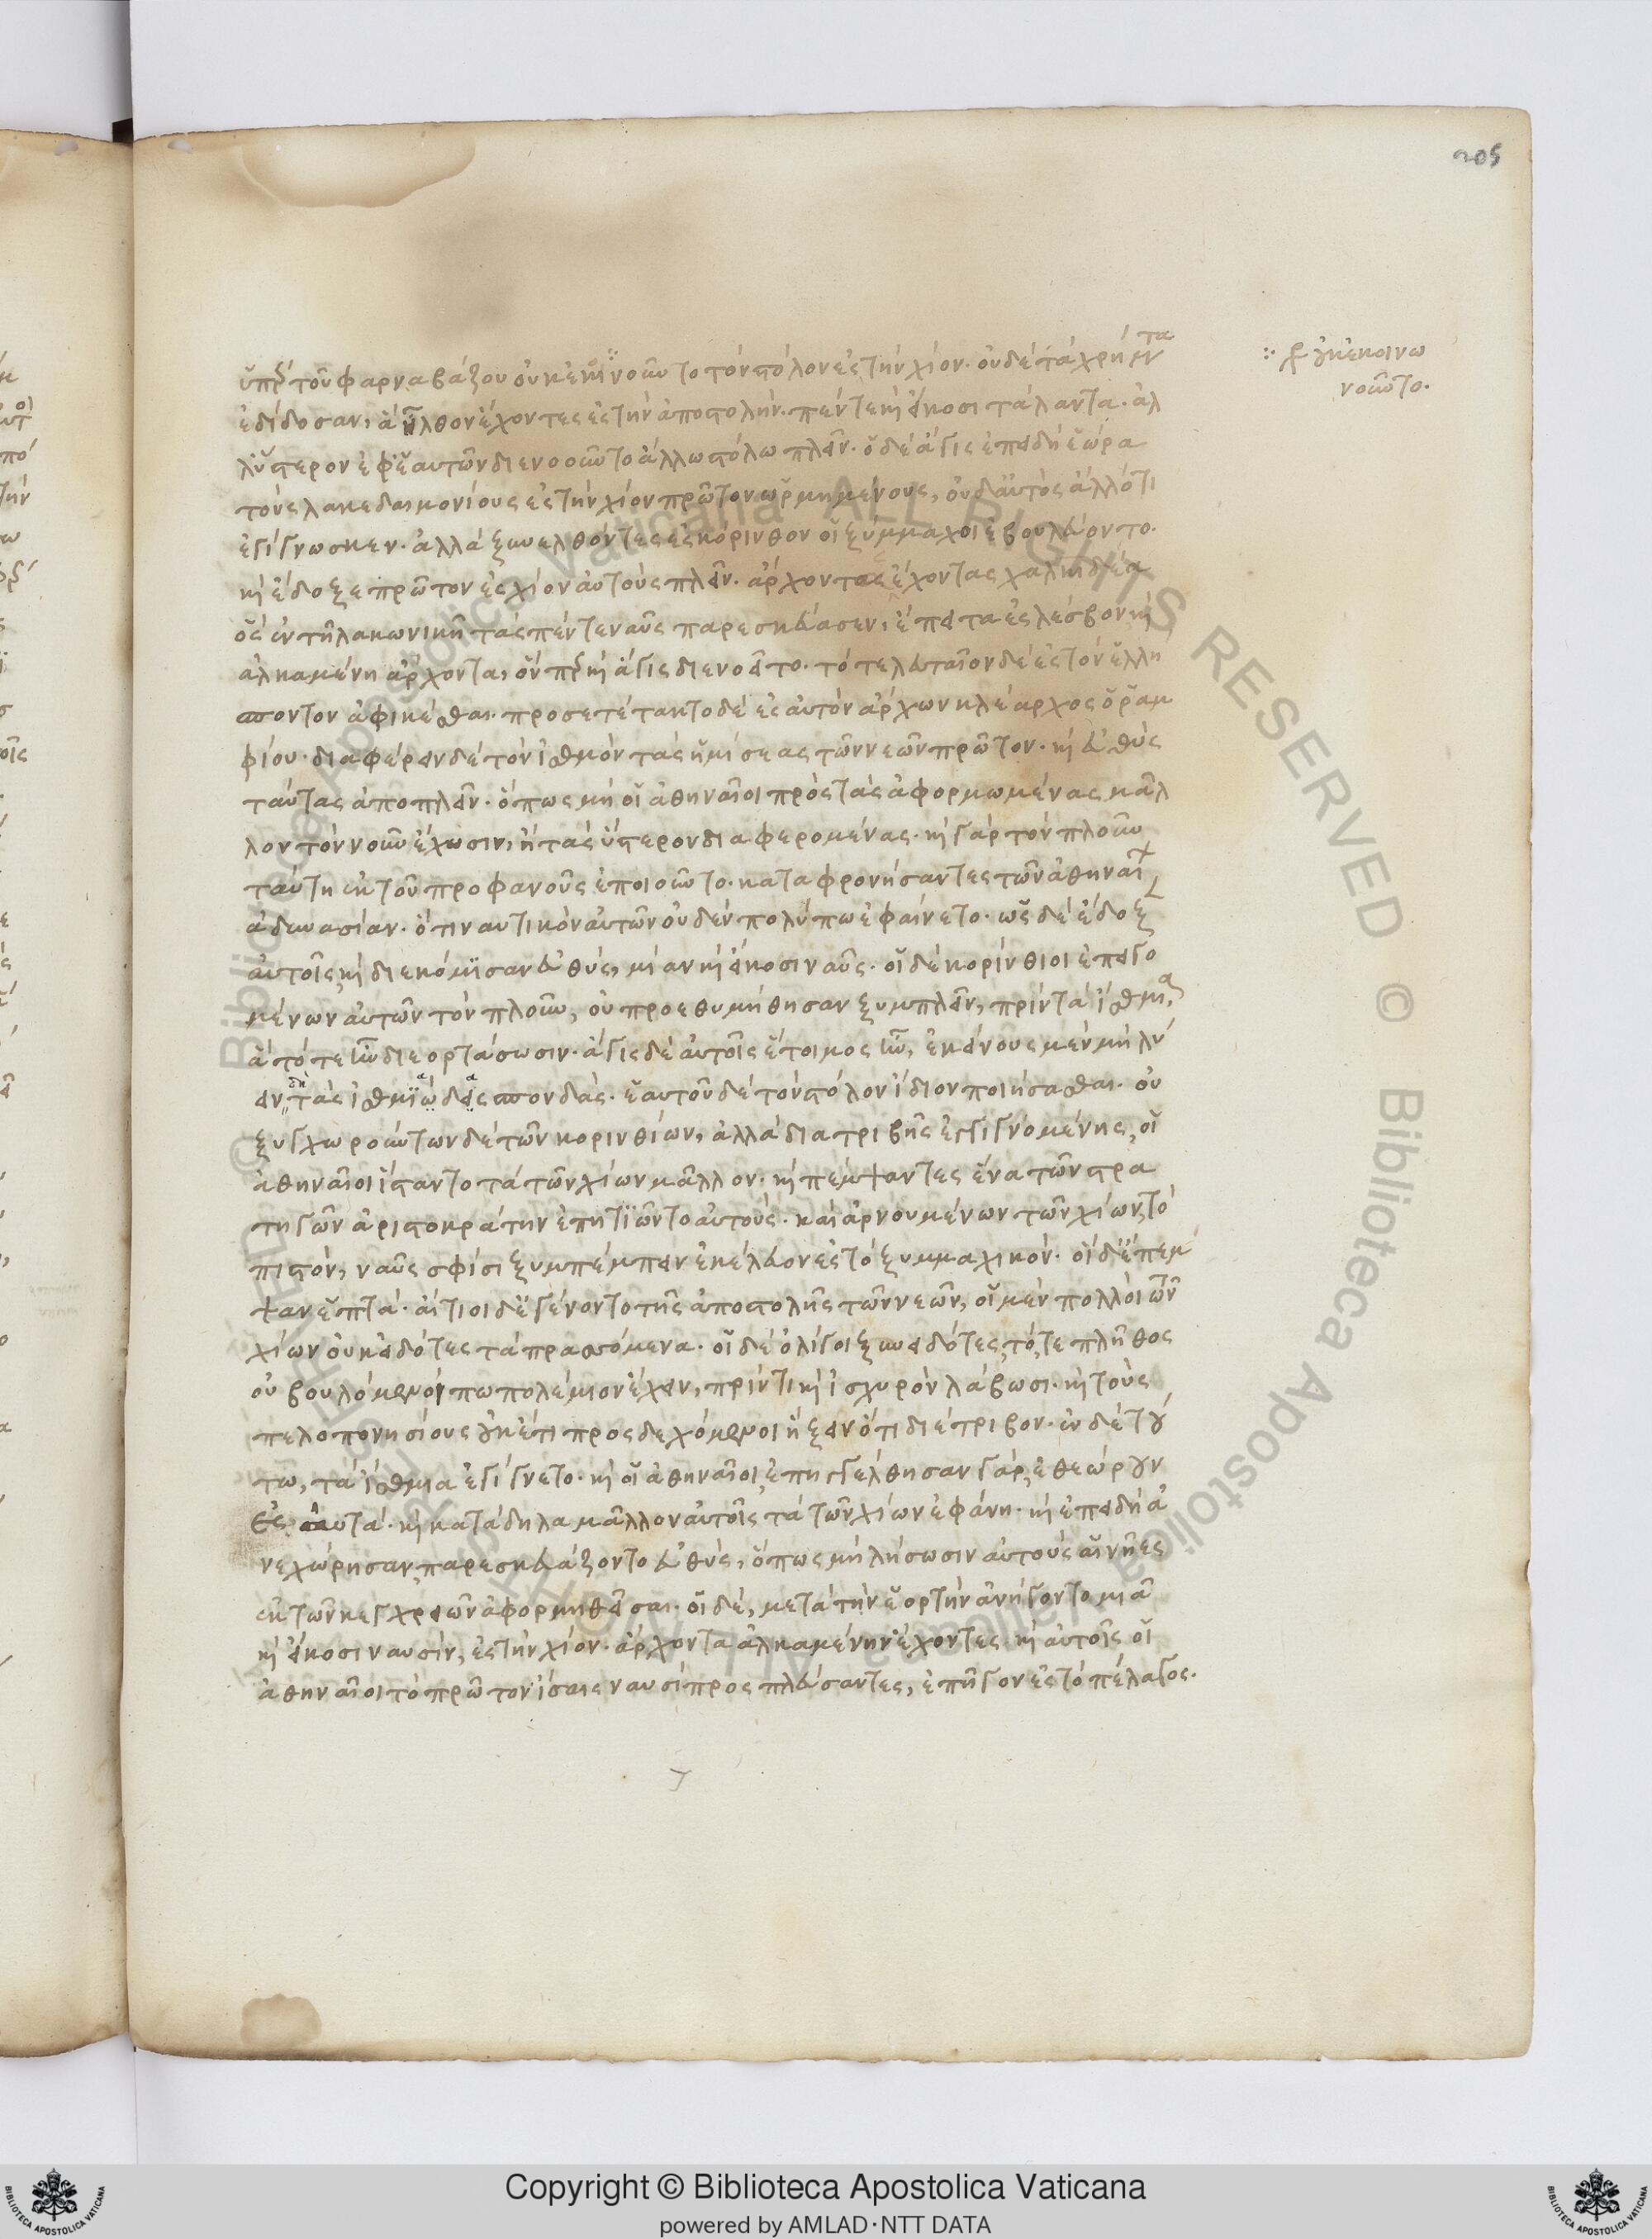 205
ὑπὲρ τοῦ φαρναβάζου οὐκ ἐκοινοῦντο τὸν στόλον ἐς τὴν χίον. οὐδὲ τὰ χρήματα
∵ γρ οὐκ ἐκοινω
νοῦντο.
ἐδίδοσαν, ἃ ἦλθον ἔχοντες ἐς τὴν ἀποστολὴν. πέντε καὶ εἴκοσι τάλαντα. ἀλ
λ' ὕστερον ἐφ' ἑαυτῶν διενοοῦντο ἄλλω στόλω πλεῖν. ὁ δὲ ἄγις ἐπειδὴ ἑώρα
τοὺς λακεδαιμονίους ἐς τὴν χίον πρῶτον ὡρμημένους, οὐδ' αὐτὸς ἄλλό τι
ἐγίγνωσκεν. ἀλλὰ ξυνελθόντες ἐς κόρινθον οἱ ξύμμαχοι ἐβουλεύοντο.
καὶ ἔδοξε πρῶτον ἐς χίον αὐτοὺς πλεῖν. ἄρχοντας ἔχοντας χαλκιδέα
ὃς ἐν τῆ λακωνικῆ τὰς πέντε ναῦς παρεσκεύασεν, ἔπειτα ἐς λέσβον καὶ
ἀλκαμένη ἄρχοντα, ὅνπερ καὶ ἄγις διενοεῖτο. τὸ τελευταῖον δὲ ἐς τὸν ἑλλή
σποντον ἀφικέσθαι. προσετέτακτο δὲ ἐς αὐτὸν ἄρχων κλέαρχος ὁ ῥαμ
φίου. διαφέρειν δὲ τὸν ἰσθμὸν τὰς ἡμίσεας τῶν νεῶν πρῶτον. καὶ εὐθὺς
ταύτας ἀποπλεῖν. ὅπως μὴ οἱ ἀθηναῖοι πρὸς τὰς ἀφορμωμένας μᾶλ
λον τὸν νοῦν ἔχωσιν, ἢ τὰς ὕστερον διαφερομένας. καὶ γὰρ τὸν πλοῦν
ταύτη ἐκ τοῦ προφανοῦς ἐποιοῦντο. καταφρονήσαντες τῶν ἀθηναίων
ἀδυνασίαν. ὅτι ναυτικὸν αὐτῶν οὐδὲν πολύ πω ἐφαίνετο. ὡς δὲ ἔδοξεν
αὐτοῖς, καὶ διεκόμισαν εὐθὺς, μίαν καὶ εἴκοσι ναῦς. οἱ δὲ κορίνθιοι ἐπειγο
μένων αὐτῶν τὸν πλοῦν, οὐ προεθυμήθησαν ξυμπλεῖν, πρὶν τὰ ἴσθμια,
ἃ τότε ἦν διεορτάσωσιν. ἄγις δὲ αὐτοῖς ἕτοιμος ἦν, ἐκείνους μὲν μὴ λύ
ειν τὰς ἰσθμιώδεις σπονδάς. ἑαυτοῦ δὲ τὸν στόλον ἴδιον ποιήσασθαι. οὐ
ξυγχωρούντων δὲ τῶν κορινθίων, ἀλλὰ διατριβῆς ἐγγιγνομένης, οἱ
ἀθηναῖοι ἤσθοντο τὰ τῶν χίων μᾶλλον. καὶ πέμψαντες ἕνα τῶν στρα
τηγῶν ἀριστοκράτην ἐπητιῶντο αὐτούς. καὶ ἀρνουμένων τῶν χίων, τὸ
πιστὸν, ναῦς σφίσι ξυμπέμπειν ἐκέλευον ἐς τὸ ξυμμαχικόν. οἱ δ' ἔπεμ
ψαν ἑπτά. αἴτιοι δ' ἐγένοντο τῆς ἀποστολῆς τῶν νεῶν, οἱ μὲν πολλοὶ τῶν
χίων οὐκ εἰδότες τὰ πρασσόμενα. οἱ δὲ ὀλίγοι ξυνειδότες, τό, τε πλῆθος
οὐ βουλόμενοί πω πολέμιον ἔχειν, πρίν τι καὶ ἰσχυρὸν λάβωσι. καὶ τοὺς
πελοπονησίους οὐκέτι προσδεχόμενοι ἥξειν ὅτι διέτριβον. ἐν δὲ τού
τω, τὰ ἴσθμια ἐγίγνετο. καὶ οἱ ἀθηναῖοι, ἐπηγγέλθησαν γάρ, ἐθεώρουν
ἐς αὐτά. καὶ κατάδηλα μᾶλλον αὐτοῖς τὰ τῶν χίων ἐφάνη. καὶ ἐπειδὴ ἀ
νεχώρησαν, παρεσκευάζοντο εὐθὺς, ὅπως μὴ λήσωσιν αὐτοὺς αἱ νῆες
ἐκ τῶν κεγχρειῶν ἀφορμηθεῖσαι. οἱ δέ, μετὰ τὴν ἑορτὴν ἀνήγοντο μιᾶ
καὶ εἴκοσι ναυσὶν, ἐς τὴν χίον. ἄρχοντα ἀλκαμένην ἔχοντες. καὶ αὐτοῖς οἱ
ἀθηναῖοι τὸ πρῶτον ἴσαις ναυσὶ προσπλεύσαντες, ἐπῆγον ἐς τὸ πέλαγος.
Copyright © Biblioteca Apostolica Vaticana
powered by AMLAD·NTT DATA